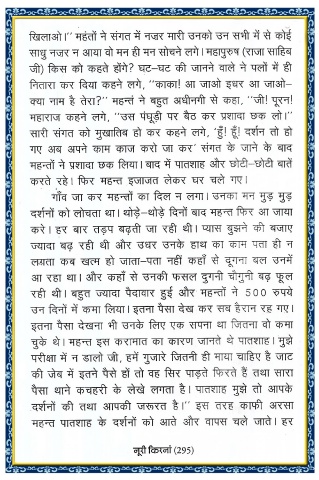 खिलाओ।" महंतों ने संगत में नजर मारी उनको उन सभी में से कोई
साधु नजर न आया वो मन ही मन सोचने लगे। महापुरुष (राजा साहिब
जी) किस को कहते होंगे? घट-घट की जानने वाले ने पलों में ही
नितारा कर दिया कहने लगे, "काका! आ जाओ इधर आ जाओ-
क्या नाम है तेरा?" महन्त ने बहुत अधीनगी से कहा, "जी! पूरन!
महाराज कहने लगे, "उस पंघूड़ी पर बैठ कर प्रशादा छक लो।"
सारी संगत को मुखातिब हो कर कहने लगे, 'हूँ! हूँ! दर्शन तो हो
गए अब अपने काम काज करो जा कर' संगत के जाने के बाद
महन्तों ने प्रशादा छक लिया। बाद में पातशाह और छोटी-छोटी बातें
करते रहे। फिर महन्त इजाजत लेकर घर चले गए।
गाँव जा कर महन्तों का दिल न लगा। उनका मन मुड़ मुड़
दर्शनों को लोचता था। थोड़े-थोड़े दिनों बाद महन्त फिर आ जाया
करे। हर बार तड़प बढ़ती जा रही थी। प्यास बुझने की बजाए
ज्यादा बढ़ रही थी और उधर उनके हाथ का काम पता ही न
लगता कब खत्म हो जाता-पता नहीं कहाँ से दूगना बल उनमें
आ रहा था। और कहाँ से उनकी फसल दुगनी चौगुनी बढ़ फूल
रही थी। बहुत ज्यादा पैदावार हुई और महन्तों ने 500 रुपये
उन दिनों में कमा लिया। इतना पैसा देख कर सब हैरान रह गए।
इतना पैसा देखना भी उनके लिए एक सपना था जितना वो कमा
चुके थे। महन्त इस करामात का कारण जानते थे पातशाह। मुझे
परीक्षा में न डालो जी, हमें गुजारे जितनी ही माया चाहिए है जाट
की जेब में इतने पैसे हों तो वह सिर पाड़ते फिरते हैं तथा सारा
पैसा थाने कचहरी के लेखे लगता है। पातशाह मुझे तो आपके
दर्शनों की तथा आपकी जरूरत है।" इस तरह काफी अरसा
महन्त पातशाह के दर्शनों को आते और वापस चले जाते। हर
नूरी किरनां (295)